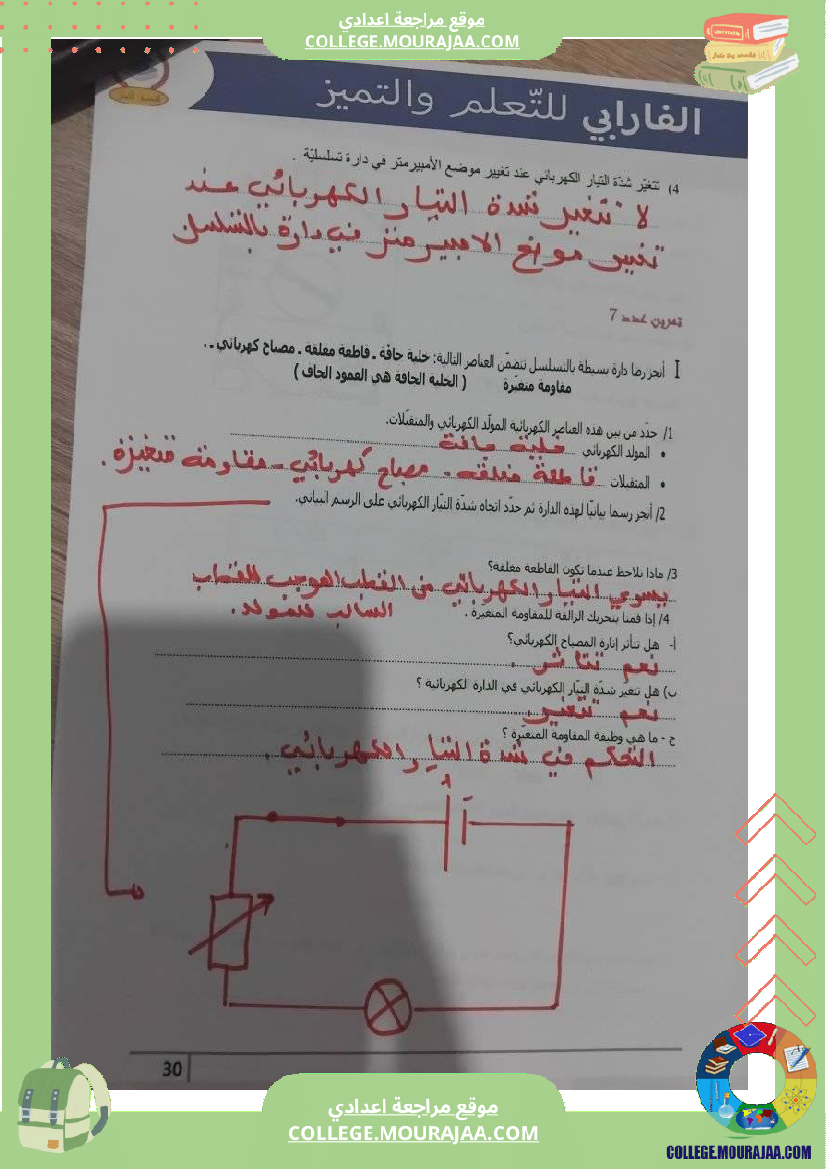 موقع مراجعة اعدادي
COLLEGE.MOURAJAA.COM
الفارابي للتّعلم والتميز
4) تتغيّر شدّة التيار الكهربائي عند تغيير موضع الأمبيرمتر في دارة تسلسليّة .
لا تتغير شدة التيار الكهربائي عند
تغيير موضع الامبيرمتر في دارة بالتسلسل
تمرين عدد 7
I أنجز رما دارة بسيطة بالتسلسل تتضمّن العناصر التالية: خلية جافّة ـ قاطعة مغلقة ـ مصباح كهربائي ـ
مقاومة متغيّرة ( الخلية الجافة هي العمود الجاف )
1/ حدّد من بين هذه العناصر الكهربائية المولّد الكهربائي والمتقبّلات.
• المولد الكهربائي خلية جافة
• المتقبلات قاطعة مغلقة - مصباح كهربائي - مقاومة متغيرة .
2/ أنجز رسما بيانيّا لهذه الدارة ثم حدّد اتجاه شدّة التيّار الكهربائي على الرسم البياني.
3/ ماذا تلاحظ عندما تكون القاطعة مغلقة؟
يسوي التيار الكهربائي من القطب الموجب للقطب
السالب للمولد .
4/ إذا قمنا بتحريك الزالقة للمقاومة المتغيّرة .
أ- هل تتأثر إنارة المصباح الكهربائي؟
نعم تتأثر .
ب) هل تتغير شدّة التيّار الكهربائي في الدارة الكهربائية ؟
نعم تتغير
ج - ما هي وظيفة المقاومة المتغيّرة ؟
التحكم في شدة التيار الكهربائي .
30
موقع مراجعة اعدادي
COLLEGE.MOURAJAA.COM
COLLEGE.MOURAJAA.COM